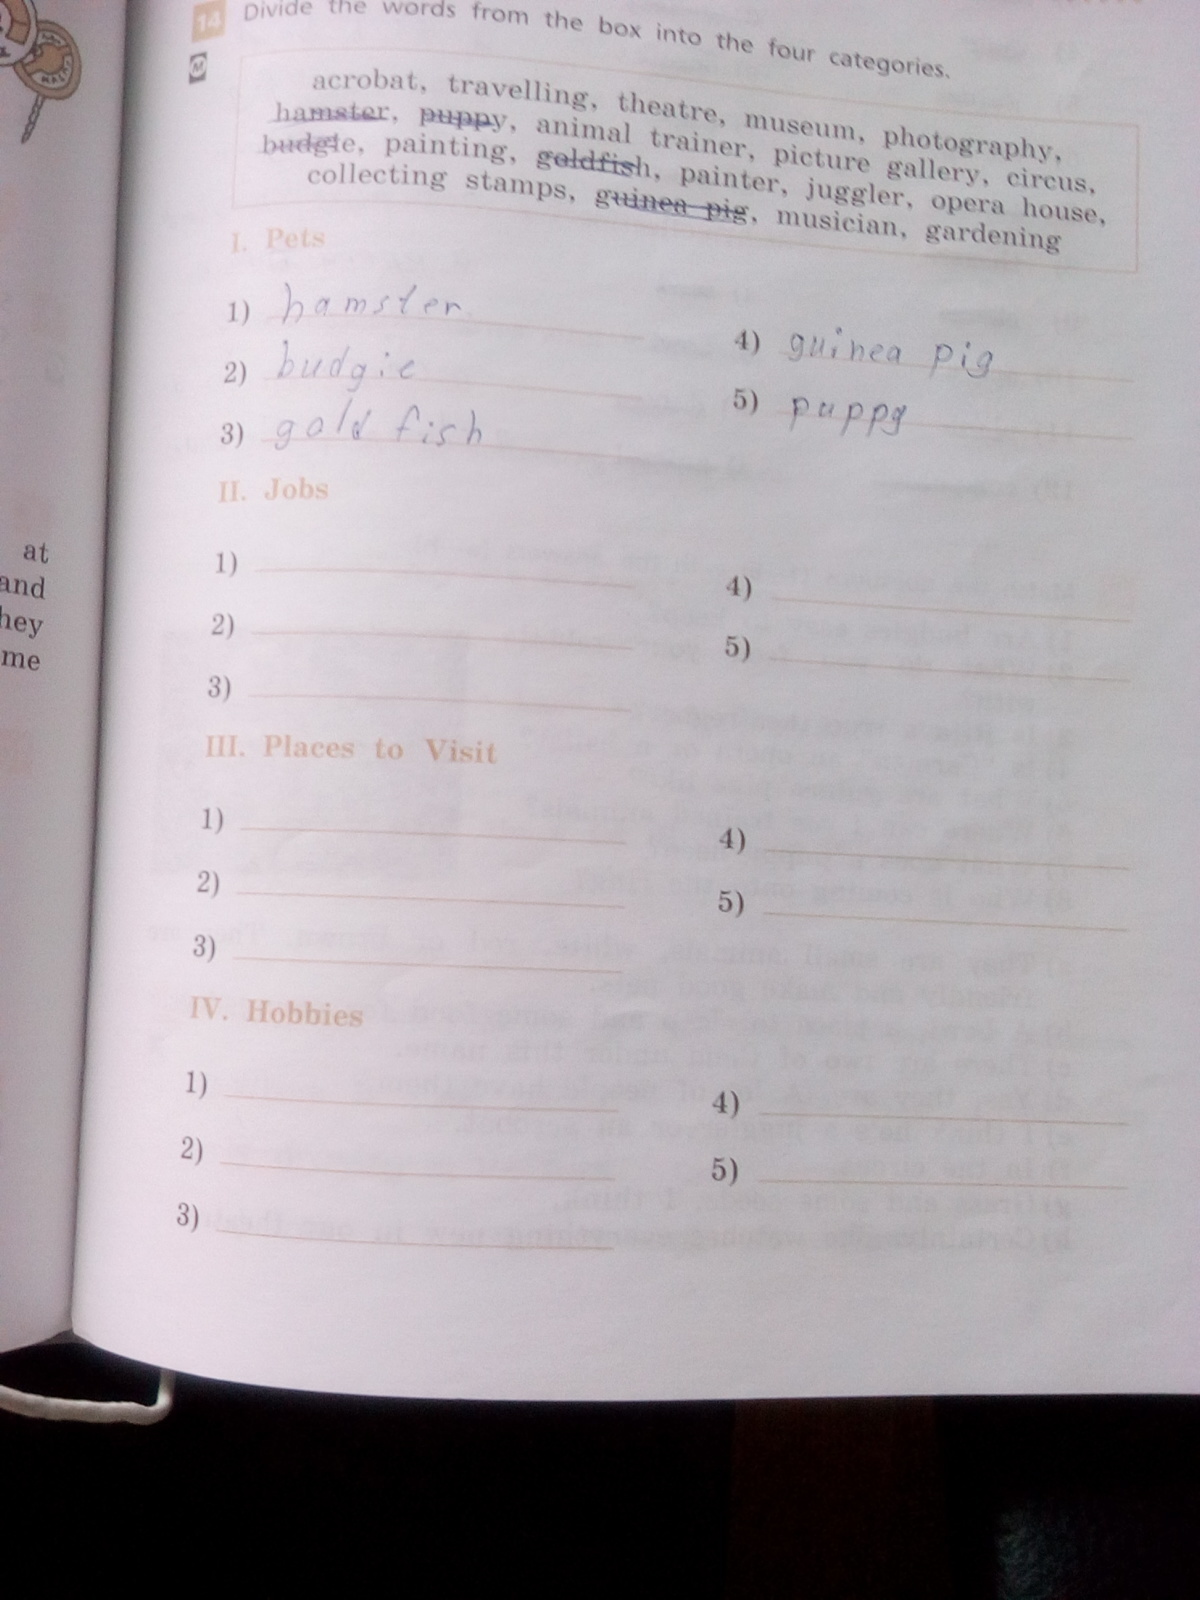 14 Divide the words from the box into the four categories.
M
acrobat, travelling, theatre, museum, photography,
hamster, puppy, animal trainer, picture gallery, circus,
budgie, painting, goldfish, painter, juggler, opera house,
collecting stamps, guinea pig, musician, gardening
I. Pets
1) hamster
2) budgie
3) gold fish
4) guinea pig
5) puppy
II. Jobs
1)
2)
3)
4)
5)
III. Places to Visit
1)
2)
3)
4)
5)
IV. Hobbies
1)
2)
3)
4)
5)
at
and
hey
me